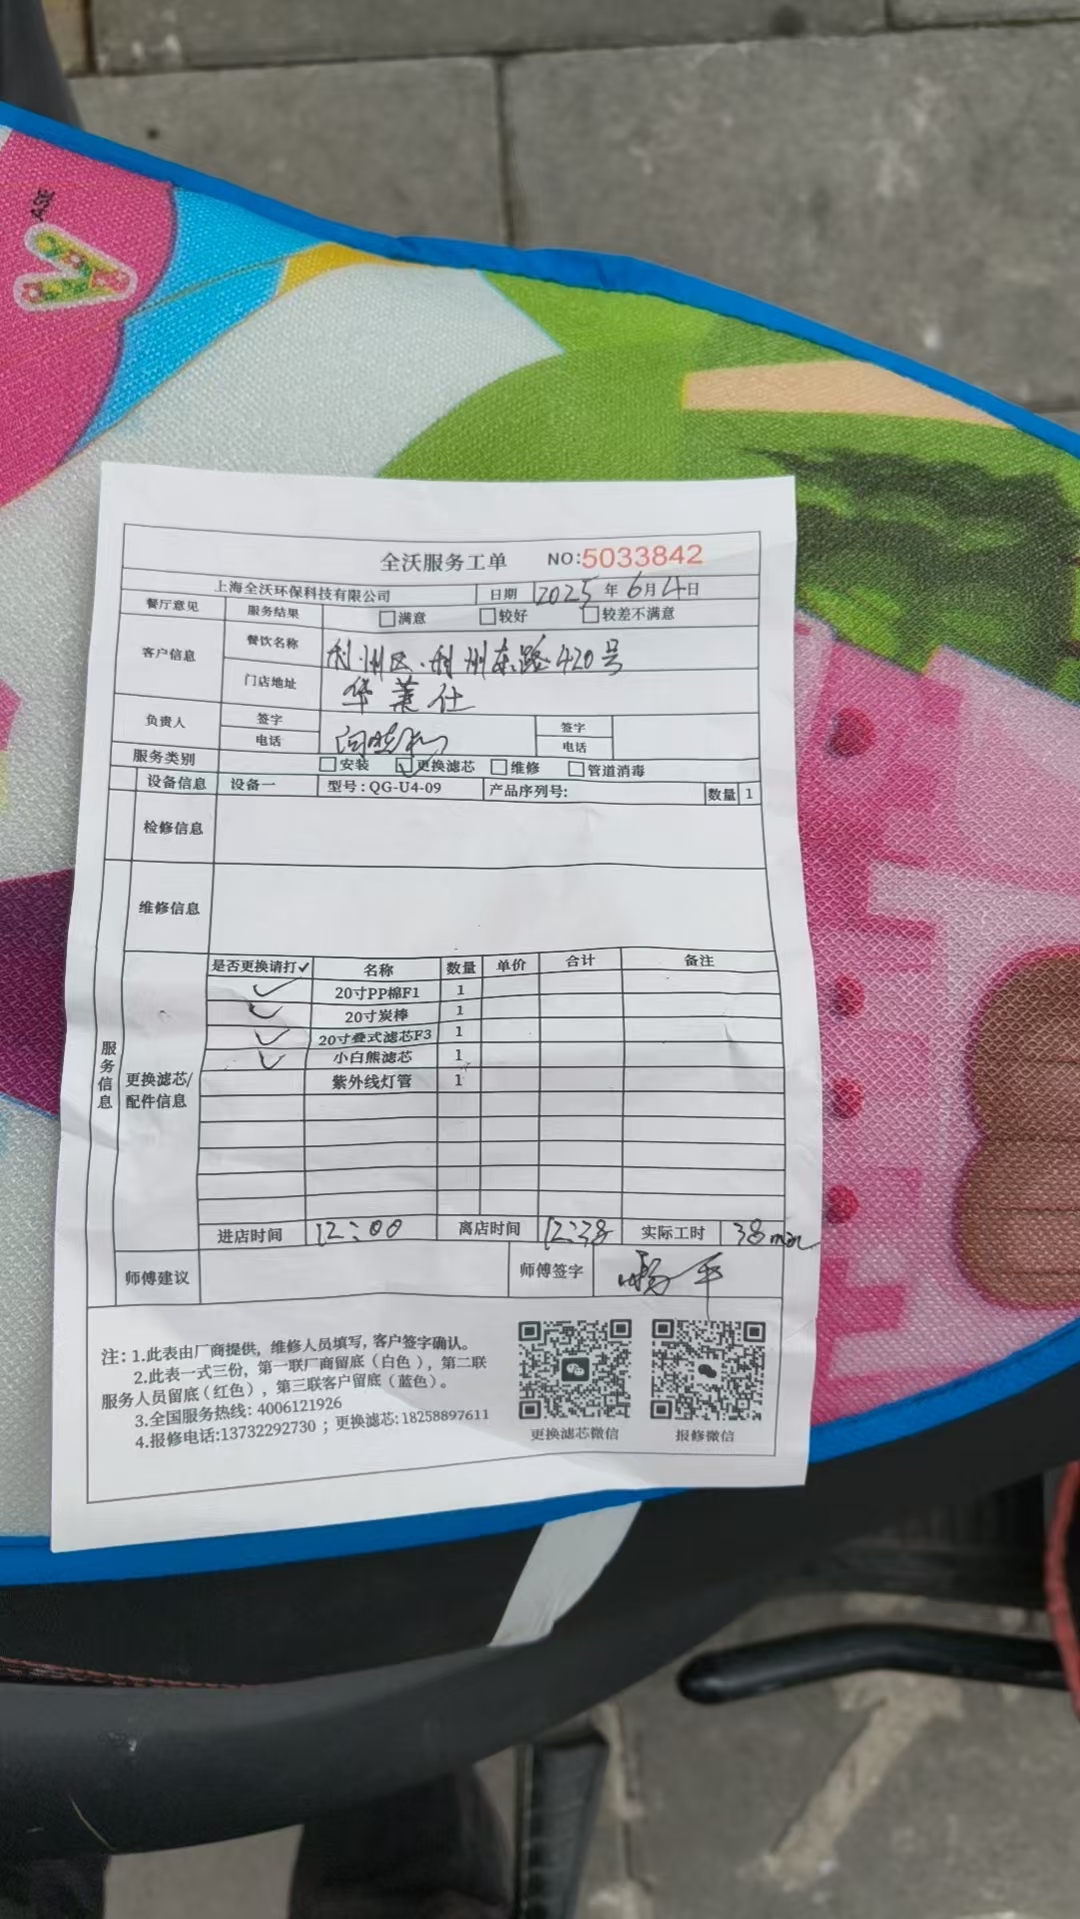 全沃服务工单 NO:5033842
上海全沃环保科技有限公司 日期 2025 年 6月4日
餐厅意见 服务结果 满意 较好 较差不满意
客户信息 餐饮名称 利州区.利州东路420号
门店地址 华莱仕
负责人 签字 签字
电话 电话
服务类别 安装 更换滤芯 维修 管道消毒
设备信息 设备一 型号:QG-U4-09 产品序列号: 数量 1
检修信息
维修信息
服务信息
更换滤芯/配件信息
是否更换请打✓ 名称 数量 单价 合计 备注
✓ 20寸PP棉F1 1
✓ 20寸炭棒 1
✓ 20寸叠式滤芯F3 1
✓ 小白熊滤芯 1
紫外线灯管 1
进店时间 12:00 离店时间 12:38 实际工时 38min
师傅建议 师傅签字
注:1.此表由厂商提供，维修人员填写，客户签字确认。
2.此表一式三份，第一联厂商留底(白色)，第二联
服务人员留底(红色)，第三联客户留底(蓝色)。
3.全国服务热线:4006121926
4.报修电话:13732292730；更换滤芯:18258897611
更换滤芯微信 报修微信